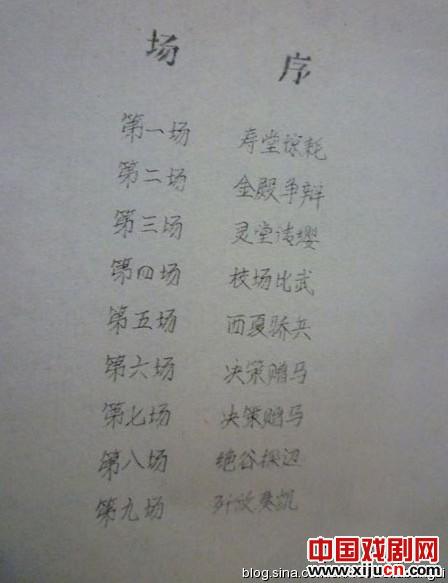 场 序
第一场 寿堂惊耗
第二场 金殿争辩
第三场 灵堂请缨
第四场 校场比武
第五场 西夏骄兵
第六场 决策赠马
第七场 决策赠马
第八场 绝谷探边
第九场 歼敌奏凯
中国戏剧网
www.xijucn.com
blog.sina.c